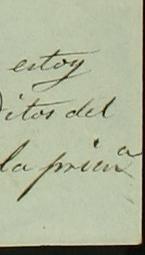 estoy
ditos del
la prim^a